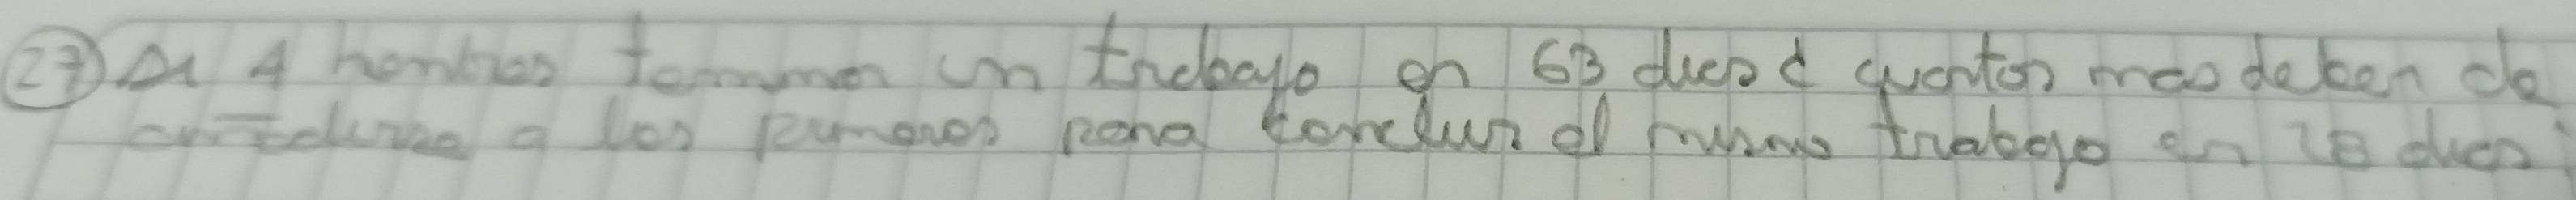 27 Si 4 hombres terminan un trabajo en 63 dias ¿ cuantos mas deben de
añadirse a los primeros para concluir el mismo trabajo en 28 dias?